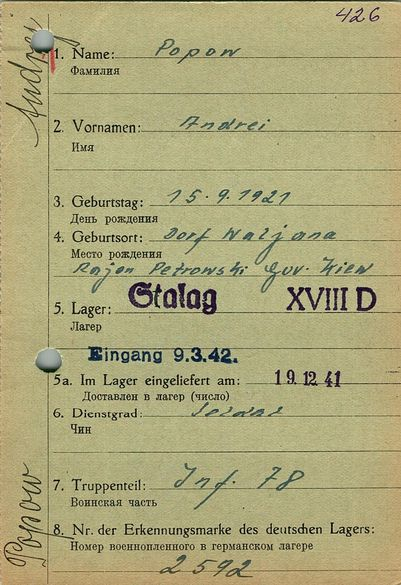 426
1. Name: Popow
Фамилия
2. Vornamen: Andrei
Имя
3. Geburtstag: 15.9.1921
День рождения
4. Geburtsort: Dorf Waljana
Место рождения
Rajon Petrowski Guv. Kiew
5. Lager: Stalag XVIII D
Лагер
Eingang 9.3.42.
5a. Im Lager eingeliefert am: 19.12.41
Доставлен в лагер (число)
6. Dienstgrad: Soldat
Чин
7. Truppenteil: Inf. 78
Воинская часть
8. Nr. der Erkennungsmarke des deutschen Lagers:
Номер военнопленного в германском лагере
2592
Popow
Andrej